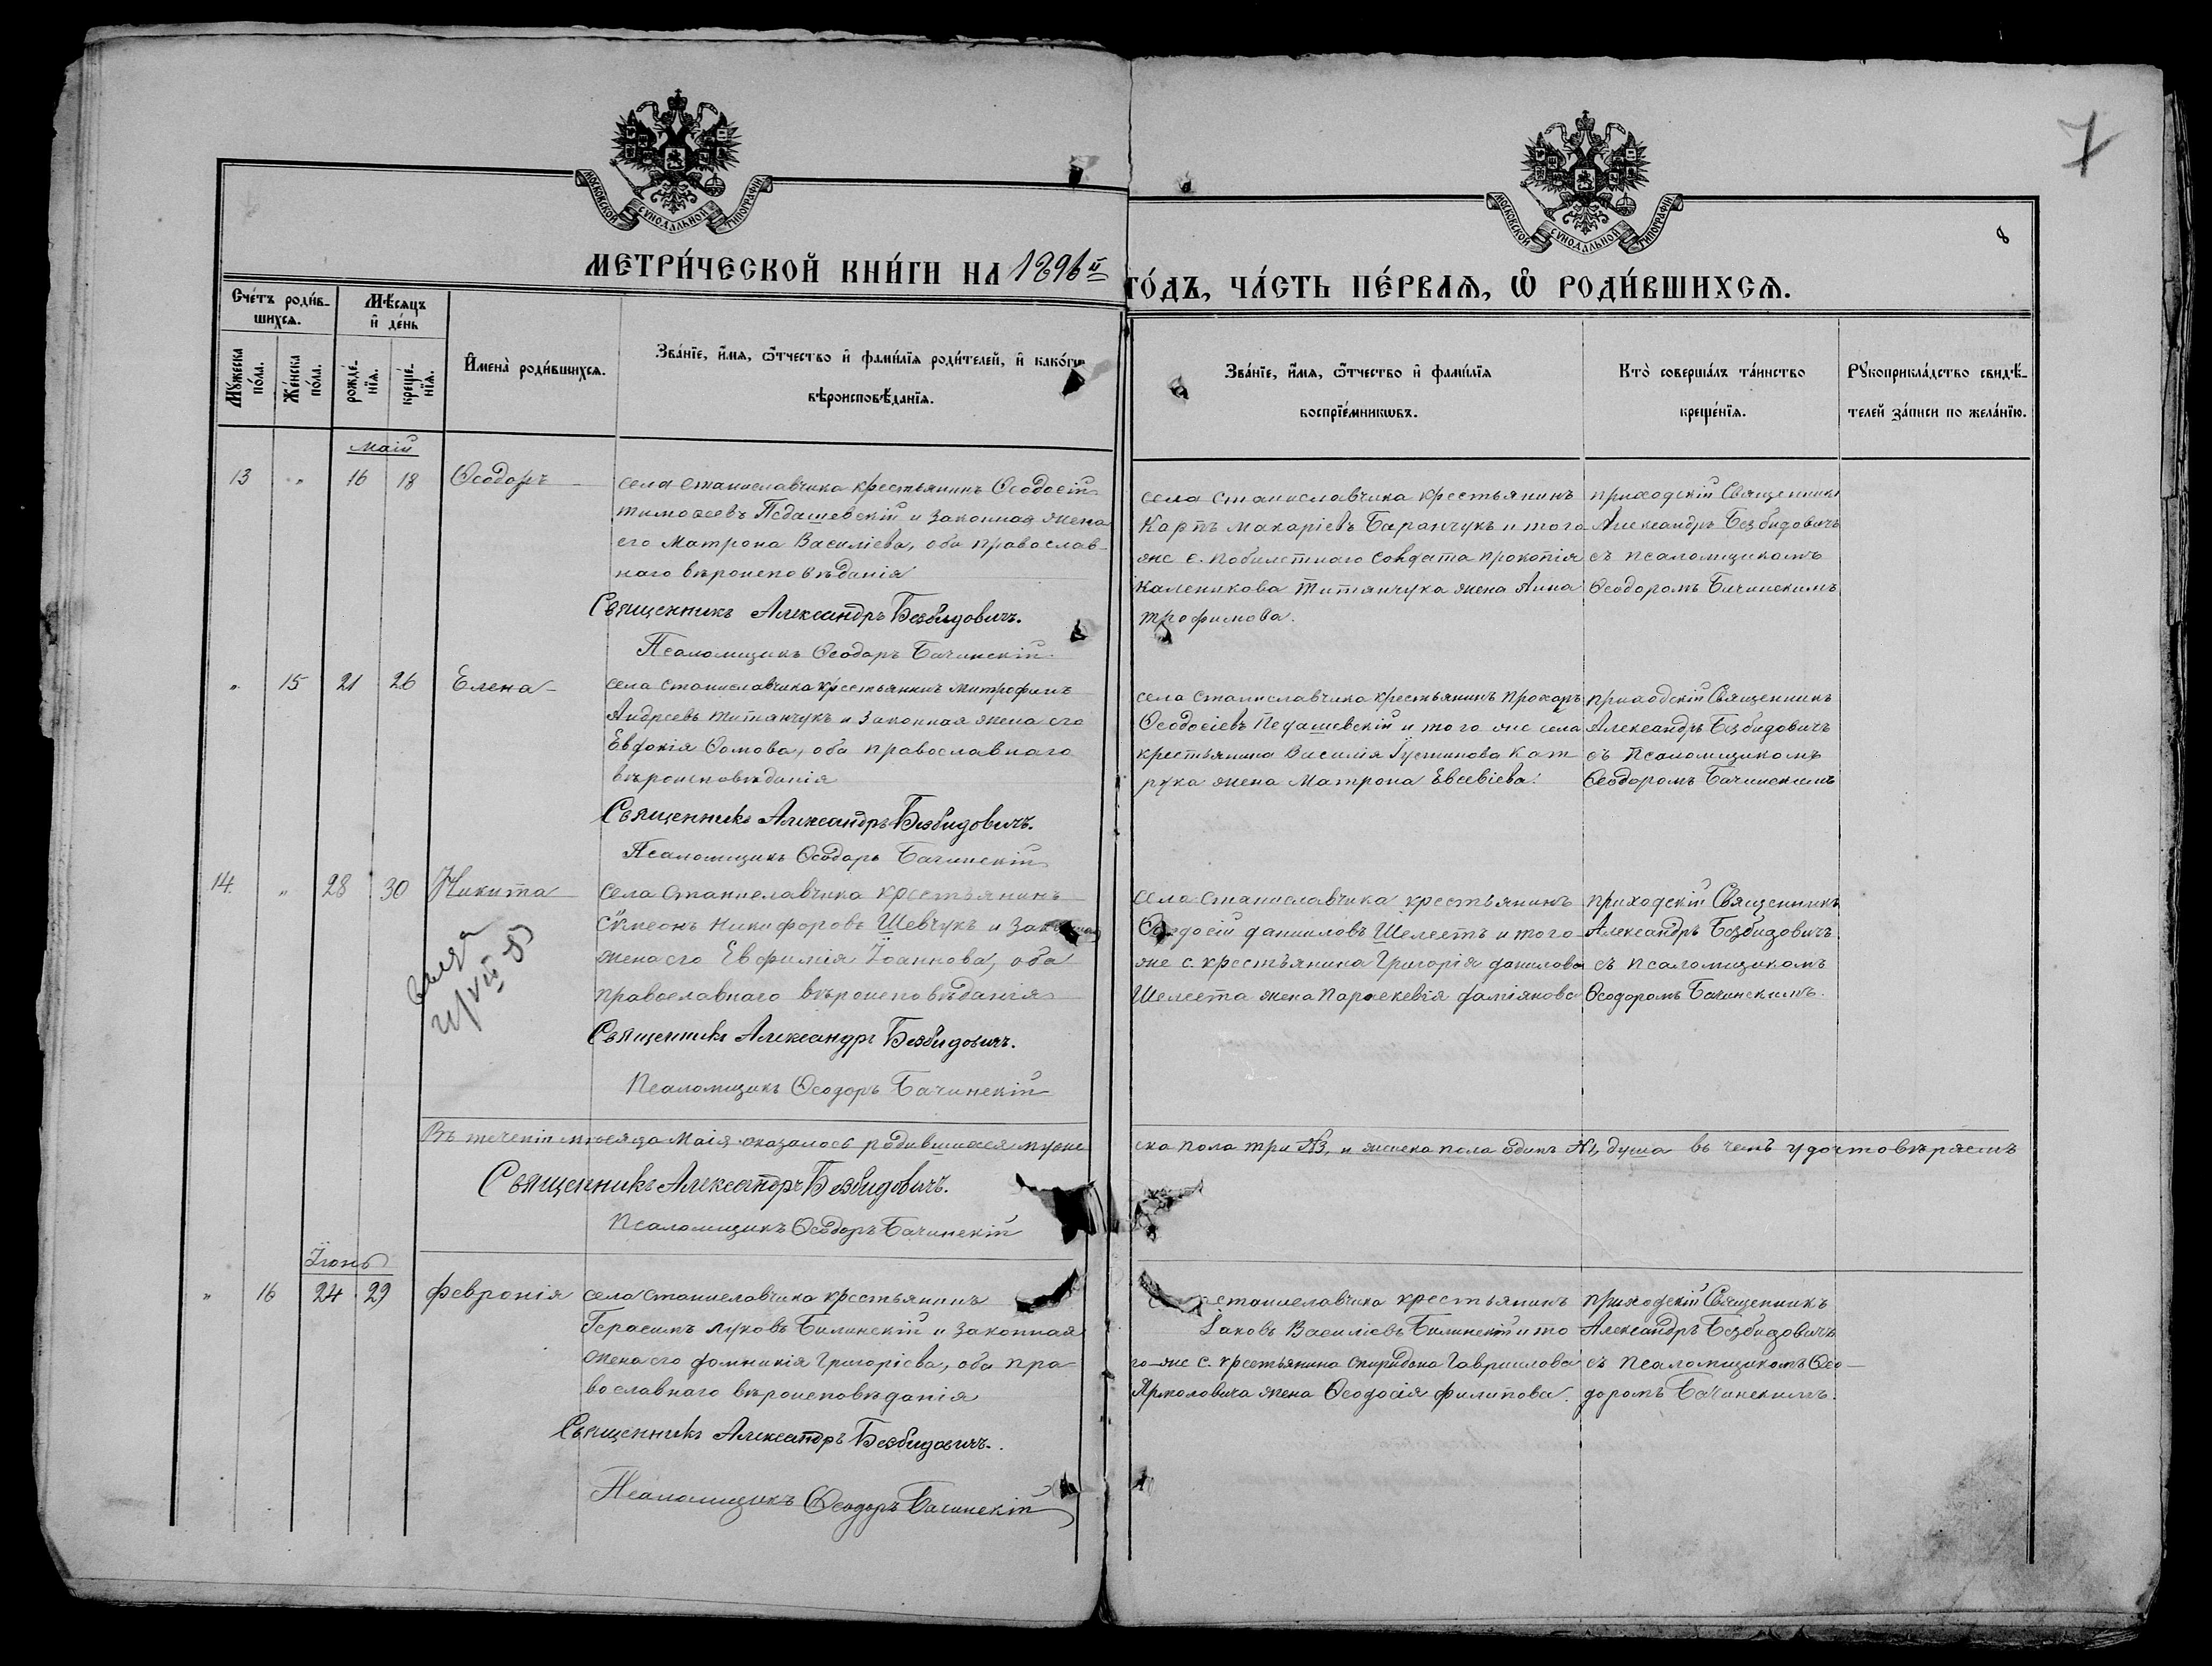 7
8
МОСКОВСКОЙ СУНОДАЛЬНОЙ ТИПОГРАФІИ
МОСКОВСКОЙ СУНОДАЛЬНОЙ ТИПОГРАФІИ
МЕТРИ́ЧЕСКОЙ КНИ́ГИ НА 1896й ГО́ДЪ, ЧА́СТЬ ПЕ́РВАѦ, Ѡ҆ РОДИ́ВШИХСѦ.
Сче́тъ роди́в-
шихсѧ.
Мѣ́сѧцъ
и҆ де́нь
Мꙋ́жеска
по́ла.
Же́нска
по́ла.
рожде́-
нїѧ.
креще́-
нїѧ.
И҆мена̀ роди́вшихсѧ.
Зва́нїе, и҆́мѧ, ѻ҆́тчество и҆ фами́лїѧ роди́телей, и҆ како́гѡ
вѣроисповѣ́данїѧ.
Зва́нїе, и҆́мѧ, ѻ҆́тчество и҆ фами́лїѧ
воспрїе́мникѡвъ.
Кто̀ соверша́лъ та́инство
креще́нїѧ.
Рꙋкоприкла́дство свидѣ́-
телей за́писи по жела́нїю.
Маій
13 " 16 18 Ѳеодоръ
села Станиславчика крестьянинъ Ѳеодосій
Тимоѳеевъ Педашевскій и законная жена
его Матрона Василіева, оба православ-
наго вѣроисповѣданія
Священникъ Александръ Безбидовичъ.
Псаломщикъ Ѳеодоръ Бачинскій
села Станиславчика крестьянинъ
Карпъ Макаріевъ Баранчукъ и того
же с. побилетнаго солдата Прокопія
Каленикова Титянчука жена Анна
Трофимова.
приходскій Священникъ
Александръ Безбидовичъ
съ псаломщикомъ
Ѳеодоромъ Бачинскимъ
" 15 21 26 Елена
села Станиславчика крестьянинъ Митрофанъ
Андреевъ Титянчукъ и законная жена его
Евдокія Ѳомова, оба православнаго
вѣроисповѣданія
Священникъ Александръ Безбидовичъ.
Псаломщикъ Ѳеодоръ Бачинскій
села Станиславчика крестьянинъ Прохоръ
Ѳеодосіевъ Педашевскій и того же села
крестьянина Василія Іустинова Кат
рука жена Матрона Евсевіева.
приходскій Священникъ
Александръ Безбидовичъ
съ Псаломщикомъ
Ѳеодоромъ Бачинскимъ
14 " 28 30 Никита
села Станиславчика крестьянинъ
Сѵмеонъ Никифоровъ Шевчукъ и законная
жена его Евфимія Іоаннова, оба
православнаго вѣроисповѣданія
Священникъ Александръ Безбидовичъ.
Псаломщикъ Ѳеодоръ Бачинскій
села Станиславчика крестьянинъ
Ѳеодосій Данииловъ Шелестъ и того
же с. крестьянина Григорія Данилова
Шелеста жена Параскевія Даміянова
приходскій Священникъ
Александръ Безбидовичъ
съ псаломщикомъ
Ѳеодоромъ Бачинскимъ.
Въ теченіи мѣсяца Маія оказалось родившихся муже
ска пола три №3, и женска пола одинъ №1, душа въ чемъ удостовѣряемъ
Священникъ Александръ Безбидовичъ.
Псаломщикъ Ѳеодоръ Бачинскій
Іюнь
" 16 24 29 Февронія
села Станиславчика крестьянинъ
Герасимъ Луковъ Билинскій и законная
жена его Домникія Григоріева, оба пра-
вославнаго вѣроисповѣданія
Священникъ Александръ Безбидовичъ.
Псаломщикъ Ѳеодоръ Бачинскій
Станиславчика крестьянинъ
Іаковъ Василіевъ Билинскій и то
го-же с. крестьянина Спиридона Гавриилова
Ярмоловича жена Ѳеодосія Филипова.
приходскій Священникъ
Александръ Безбидовичъ
съ псаломщикомъ Ѳео-
доромъ Бачинскимъ.